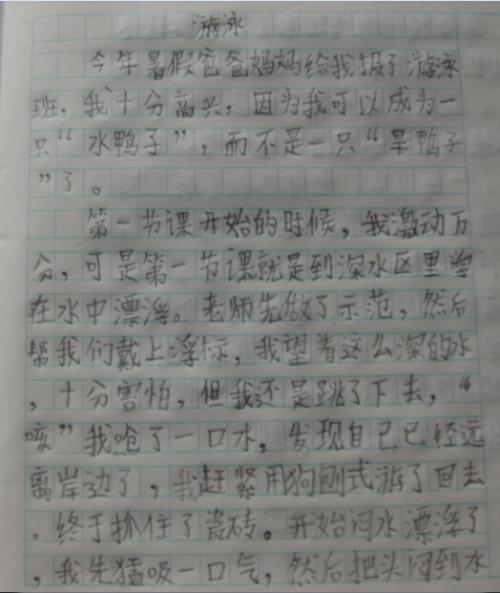 游泳
今年暑假爸爸妈妈给我报了游泳
班，我十分高兴，因为我可以成为一
只“水鸭子”，而不是一只“旱鸭子
”了。
第一节课开始的时候，我激动万
分，可是第一节课就是到深水区里学
在水中漂浮。老师先做了示范，然后
帮我们戴上浮标，我望着这么深的水
，十分害怕，但我还是跳了下去，“
咳”我呛了一口水，发现自己已经远
离岸边了，我赶紧用狗刨式游了回去
。终于抓住了瓷砖。开始闷水漂浮了
，我先猛吸一口气，然后把头闷到水